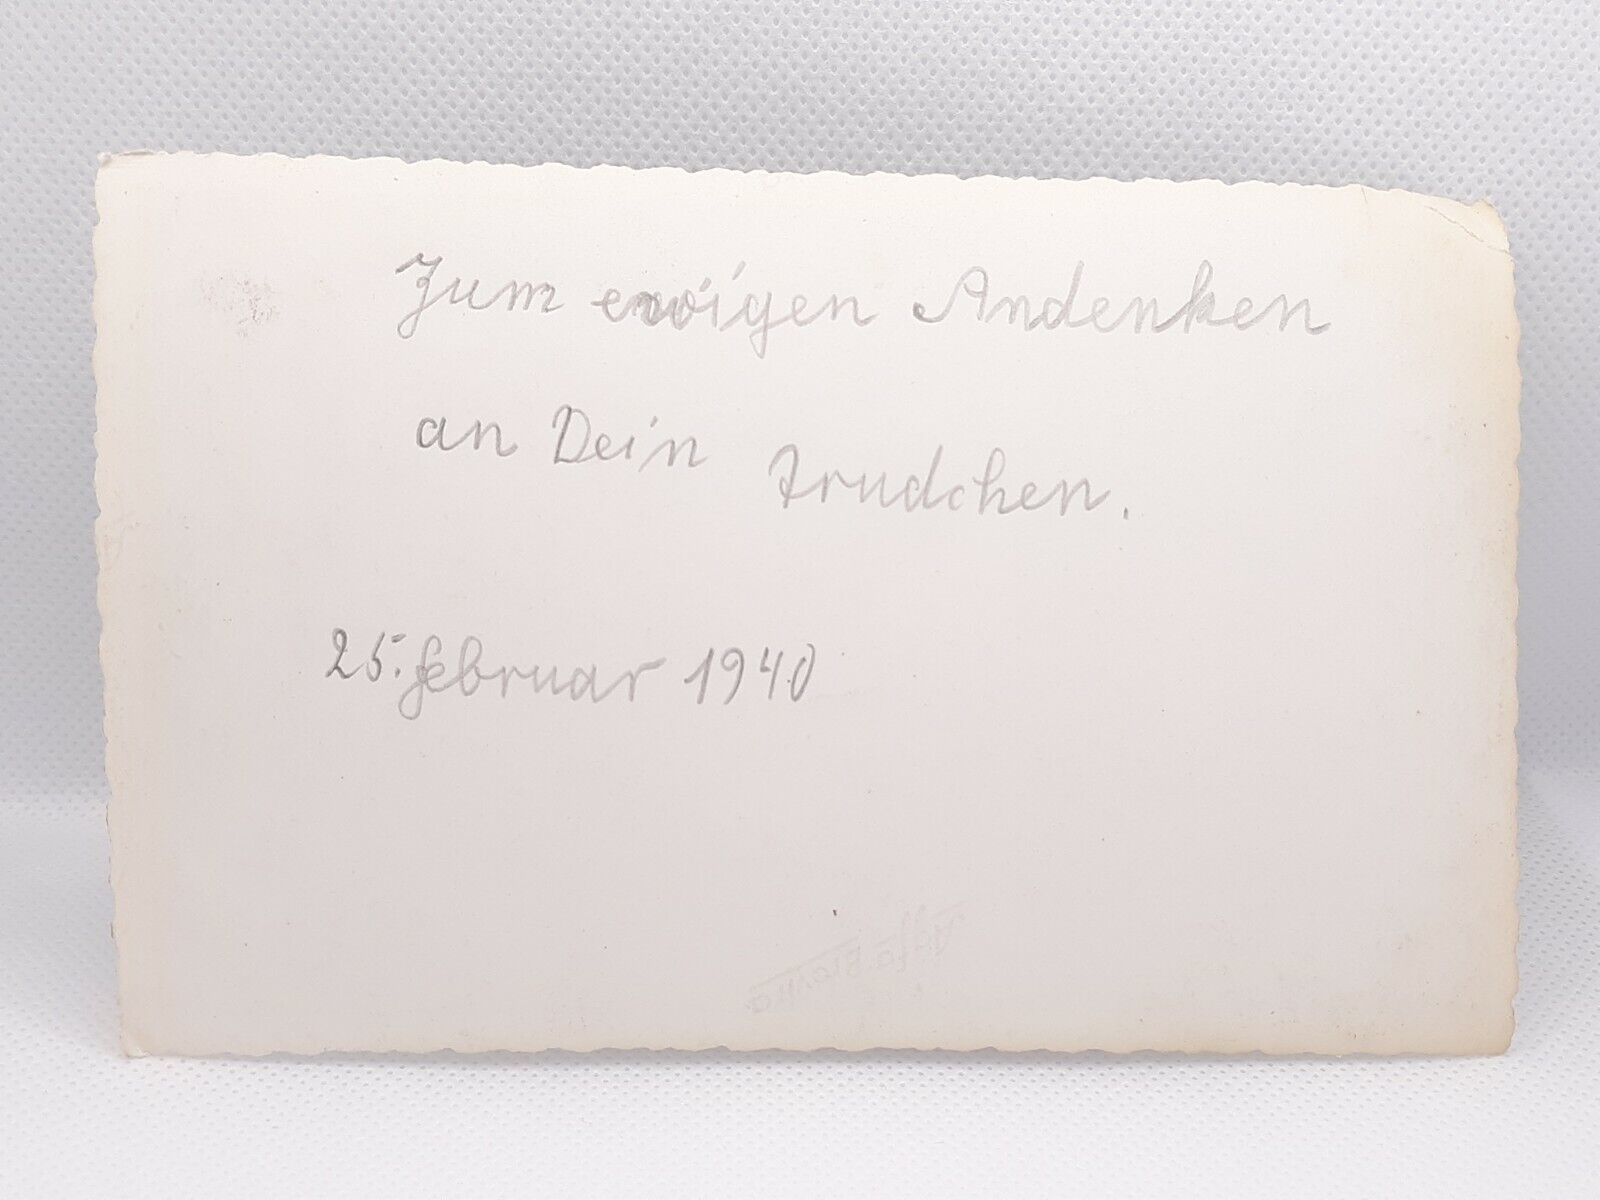 Zum ewigen Andenken
an Dein Trudchen.
25. Februar 1940